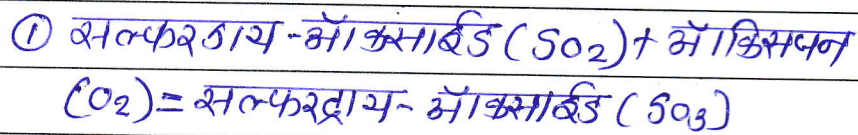 ① सल्फरडाय-ऑक्साईड (SO₂) + ऑक्सिजन
(O₂) = सल्फरट्राय- ऑक्साईड (SO₃)